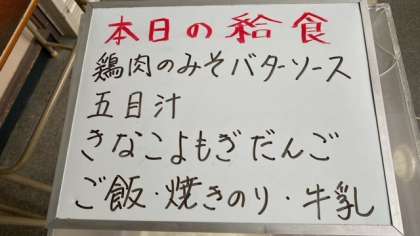 本日の給食
鶏肉のみそバターソース
五目汁
きなこよもぎだんご
ご飯・焼きのり・牛乳